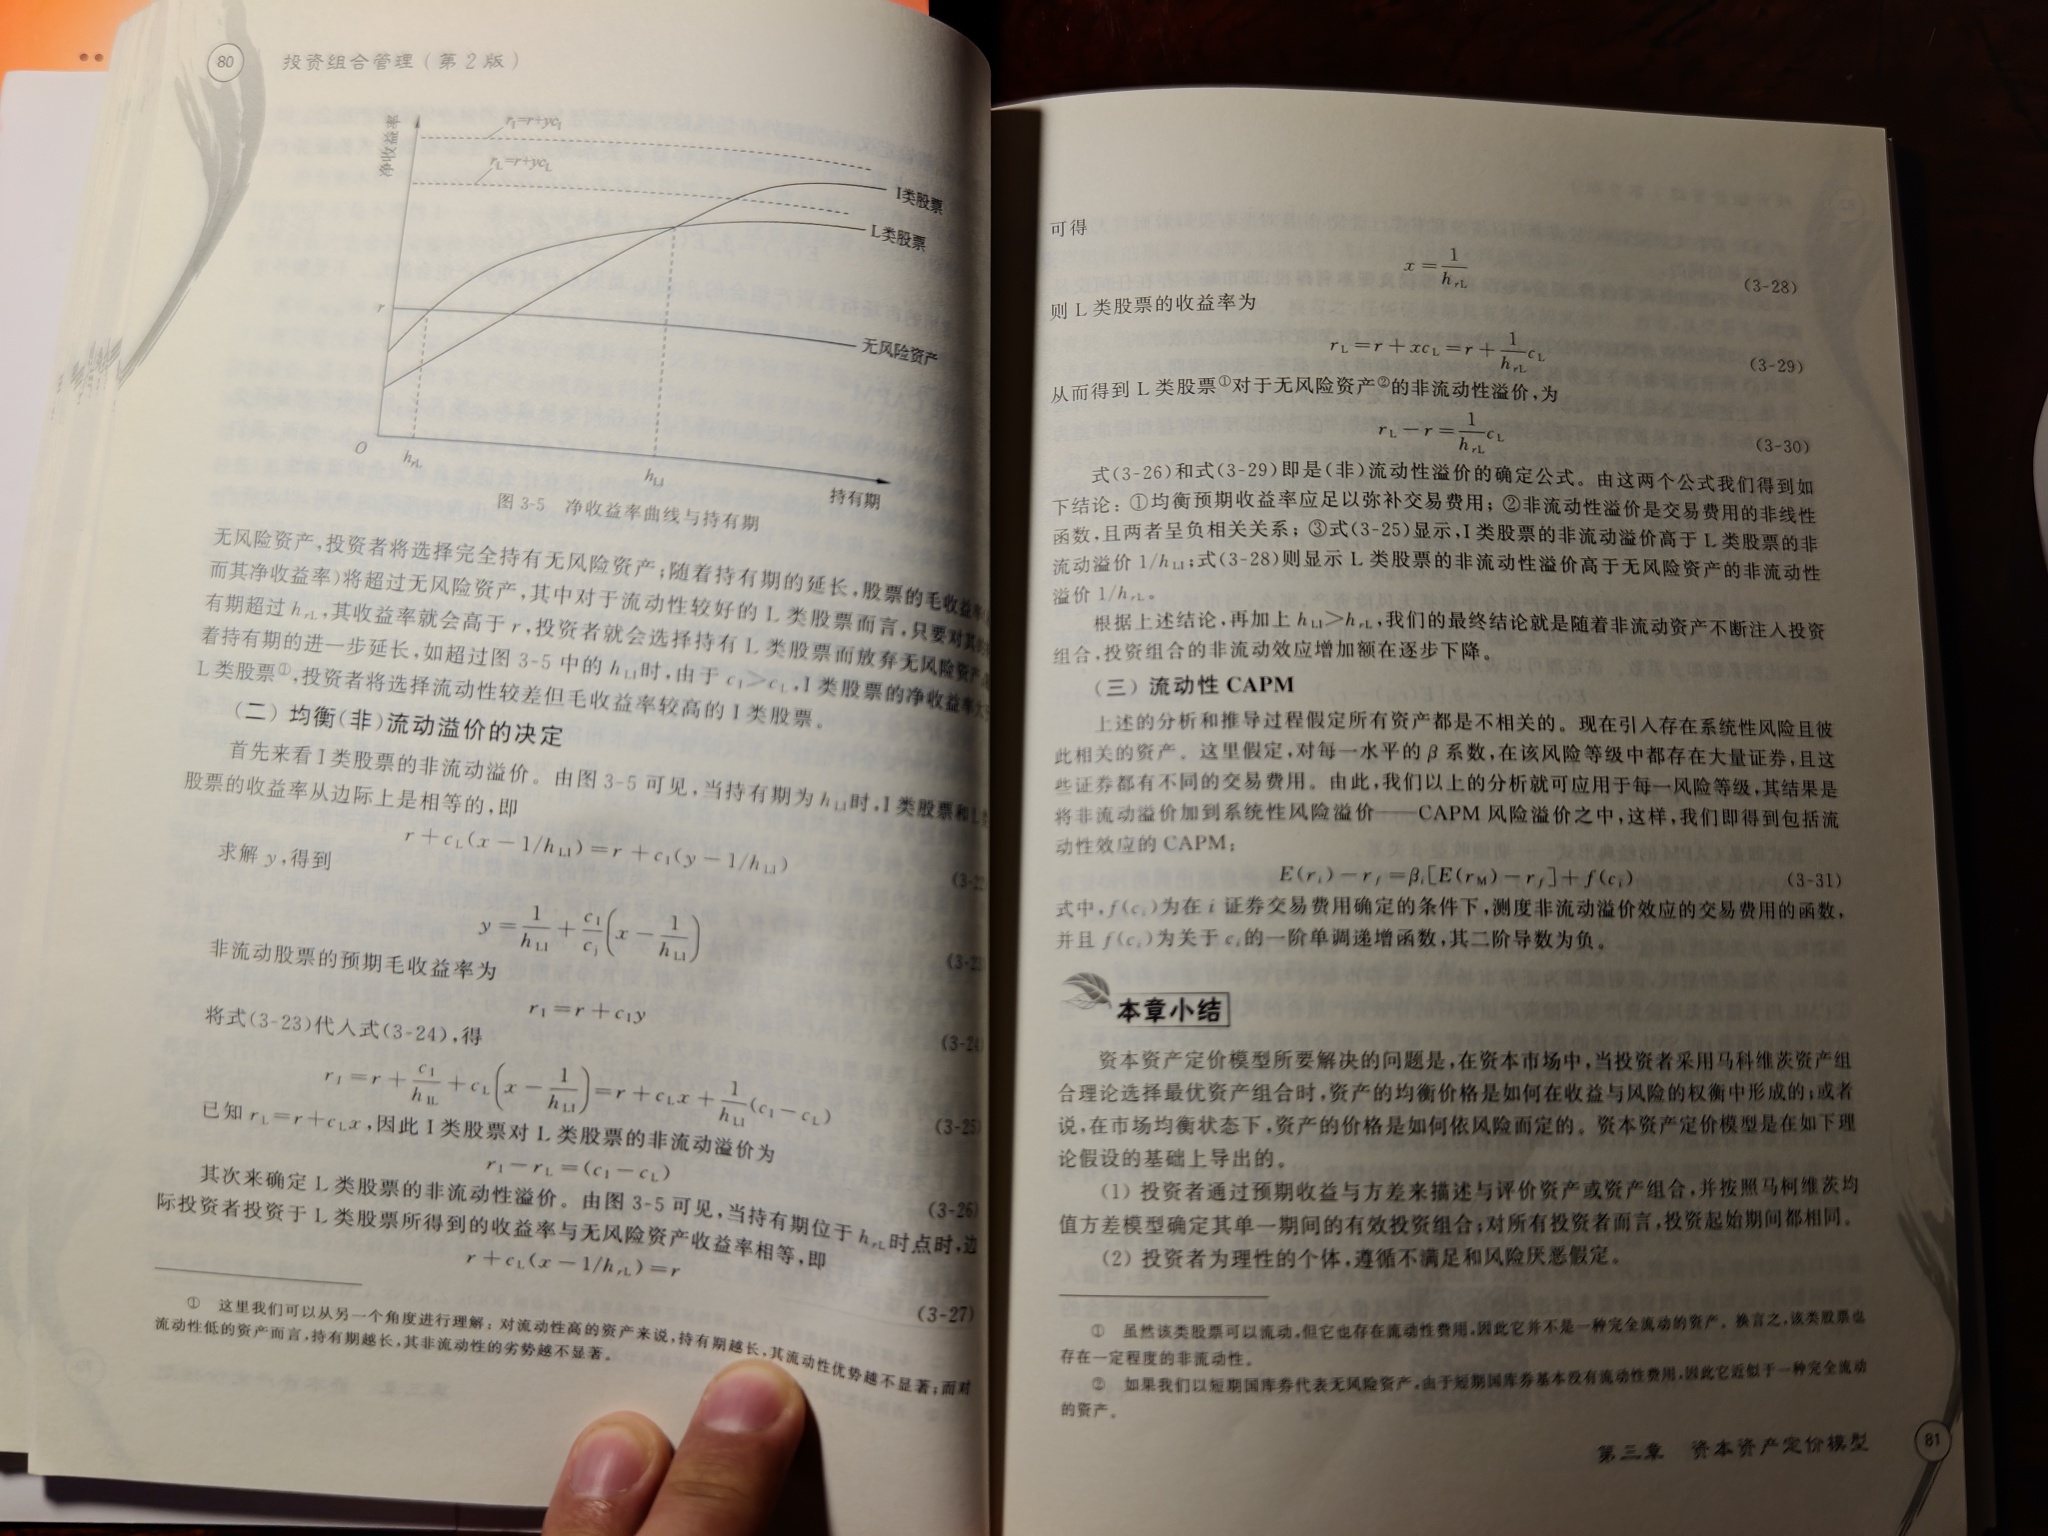 80
投资组合管理(第2版)
净收益率
r_I=r+yc_I
r_L=r+yc_L
I类股票
L类股票
r
无风险资产
O
h_rL
h_LI
持有期
图 3-5 净收益率曲线与持有期
无风险资产,投资者将选择完全持有无风险资产;随着持有期的延长,股票的毛收益率(
而其净收益率)将超过无风险资产,其中对于流动性较好的 L 类股票而言,只要对其
有期超过 h_rL,其收益率就会高于 r,投资者就会选择持有 L 类股票而放弃无风险资产,
着持有期的进一步延长,如超过图 3-5 中的 h_LI时,由于 c_I>c_L,I 类股票的净收益率大
L 类股票①,投资者将选择流动性较差但毛收益率较高的 I 类股票。
(二) 均衡(非)流动溢价的决定
首先来看 I 类股票的非流动溢价。由图 3-5 可见,当持有期为 h_LI时,I 类股票和 L
股票的收益率从边际上是相等的,即
r+c_L(x-1/h_LI)=r+c_I(y-1/h_LI)
(3-22
求解 y,得到
y=1/h_LI+c_I/c_j(x-1/h_LI)
(3-23
非流动股票的预期毛收益率为
r_I=r+c_Iy
(3-24
将式(3-23)代入式(3-24),得
r_I=r+c_I/h_IL+c_L(x-1/h_LI)=r+c_Lx+1/h_LI(c_I-c_L)
(3-25)
已知 r_L=r+c_Lx,因此 I 类股票对 L 类股票的非流动溢价为
r_I-r_L=(c_I-c_L)
(3-26)
其次来确定 L 类股票的非流动性溢价。由图 3-5 可见,当持有期位于 h_rL时点时,边
际投资者投资于 L 类股票所得到的收益率与无风险资产收益率相等,即
r+c_L(x-1/h_rL)=r
(3-27)
① 这里我们可以从另一个角度进行理解:对流动性高的资产来说,持有期越长,其流动性优势越不显著;而对
流动性低的资产而言,持有期越长,其非流动性的劣势越不显著。
可得
x=1/h_rL
(3-28)
则 L 类股票的收益率为
r_L=r+xc_L=r+1/h_rL c_L
(3-29)
从而得到 L 类股票①对于无风险资产②的非流动性溢价,为
r_L-r=1/h_rL c_L
(3-30)
式(3-26)和式(3-29)即是(非)流动性溢价的确定公式。由这两个公式我们得到如
下结论:①均衡预期收益率应足以弥补交易费用;②非流动性溢价是交易费用的非线性
函数,且两者呈负相关关系;③式(3-25)显示,I 类股票的非流动溢价高于 L 类股票的非
流动溢价 1/h_LI;式(3-28)则显示 L 类股票的非流动性溢价高于无风险资产的非流动性
溢价 1/h_rL。
根据上述结论,再加上 h_LI>h_rL,我们的最终结论就是随着非流动资产不断注入投资
组合,投资组合的非流动效应增加额在逐步下降。
(三) 流动性 CAPM
上述的分析和推导过程假定所有资产都是不相关的。现在引入存在系统性风险且彼
此相关的资产。这里假定,对每一水平的 β 系数,在该风险等级中都存在大量证券,且这
些证券都有不同的交易费用。由此,我们以上的分析就可应用于每一风险等级,其结果是
将非流动溢价加到系统性风险溢价——CAPM 风险溢价之中,这样,我们即得到包括流
动性效应的 CAPM:
E(r_i)-r_f=β_i[E(r_M)-r_f]+f(c_i)
(3-31)
式中,f(c_i)为在 i 证券交易费用确定的条件下,测度非流动溢价效应的交易费用的函数,
并且 f(c_i)为关于 c_i的一阶单调递增函数,其二阶导数为负。
本章小结
资本资产定价模型所要解决的问题是,在资本市场中,当投资者采用马科维茨资产组
合理论选择最优资产组合时,资产的均衡价格是如何在收益与风险的权衡中形成的;或者
说,在市场均衡状态下,资产的价格是如何依风险而定的。资本资产定价模型是在如下理
论假设的基础上导出的。
(1) 投资者通过预期收益与方差来描述与评价资产或资产组合,并按照马柯维茨均
值方差模型确定其单一期间的有效投资组合;对所有投资者而言,投资起始期间都相同。
(2) 投资者为理性的个体,遵循不满足和风险厌恶假定。
① 虽然该类股票可以流动,但它也存在流动性费用,因此它并不是一种完全流动的资产。换言之,该类股票也
存在一定程度的非流动性。
② 如果我们以短期国库券代表无风险资产,由于短期国库券基本没有流动性费用,因此它近似于一种完全流动
的资产。
第三章 资本资产定价模型
81